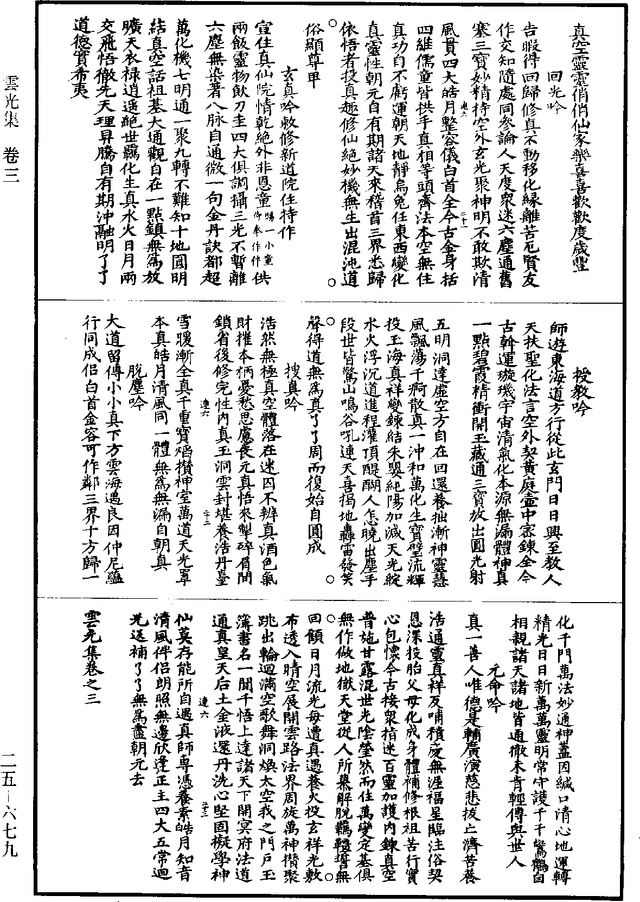 真空靈靈俏俏仙家樂喜喜歡歡度歲豐
回光吟
告暇得回歸修真不動移化緣離苦厄賢友
作交知隨處同參論人天度衆迷六塵通舊
塞三寶妙精持空外玄光聚神明不敢欺清
風貫四大皓月整容儀白首全今古金身括
四維儒童皆拱手真相等頭齊法本空無住
真功自不虧運朝天地靜烏兔任東西變化
真靈性朝元自有期諸天來稽首三界悉歸
依悟者投真趣修仙絕妙機無生出混沌道
俗顯尊卑
玄真吟敕修新道院住持作
宣住真仙院情乾絕外非恩童賜一小童侍奉作伴供
兩飯靈物飲刀圭四大俱調攝三光不暫離
六塵無染著八脉自通微一句金丹訣都超
萬化機七明通一聚九轉不難知十地圓明
結真空話祖基大通觀自在一點鎮無為放
曠天衣祿逍遙絕世羈化生真水火日月兩
交飛悟徹先天理昇騰自有期沖融明了了
道德實希夷
授教吟
師遊東海道方行從此玄門日日興至教人
天扶聖化法言空外契黃庭壺中密鍊全今
古斡運璇璣宇宙清氣化本源無漏體神真
一點碧霞精衝開玉藏通三寶放出圓光射
五明洞達虛空方自在回還養拙漸神靈慧
風飄蕩千痾散真一沖和萬化生寶璧流輝
投玉海真祥變鍊結朱嬰純陽加減天光綻
水火浮沉道進程灌頂醍醐人怎曉出塵手
段世皆驚山鳴谷吼連天喜揭地轟雷發笑
聲得道無為真了了周而復始自圓成
搜真吟
浩然無極真空體落在迷因不辨真酒色氣
財摧本柄憂愁思慮喪元真悟來掣碎眉間
鎖省後修完性內真玉洞雲封堪養浩丹臺
雪暖漸全真千重寶焰攢神室萬道天光罩
本真皓月清風同一體無為無漏自朝真
脫塵吟
大道留傳小小真下方雲海遇良因仲尼蘊
行同成侶白首金容可作鄰三界十方歸一
化千門萬法妙通神蓋因緘口清心地運轉
精光日日新萬萬靈明常守護千千鸞鶴自
相親諸天諸地皆通徹未肯輕傳與世人
元命吟
真一善人唯德是輔廣演慈悲拔亡濟苦養
浩通靈真祥及哺積慶無涯福星臨注俗契
恩澤投胎父母化成身體補修根祖苦行實
心包懷今古接衆梏迷百靈加護內鍊真空
普施甘露混世光陰瑩然而住萬變定基俱
無作做地徹天堂從人所築解脫羈韁誓無
回顧日月流光每遭真遇養火投玄祥光敷
布透入晴空展開雲路法界周旋萬神攢聚
跳出輪迴滿空歌舞洞煥太空我之門戶玉
簿書名一聞千悟上達諸天下開冥府法道
通真皇天后土金液還丹洗心堅固擬學神
仙莫存能所自遇真師專憑養素皓月知音
清風伴侶朗照無邊欣逢正主四大五常迴
光返補了了無為盡朝元去
雲光集卷之三
雲光集　卷三
二五—六七九